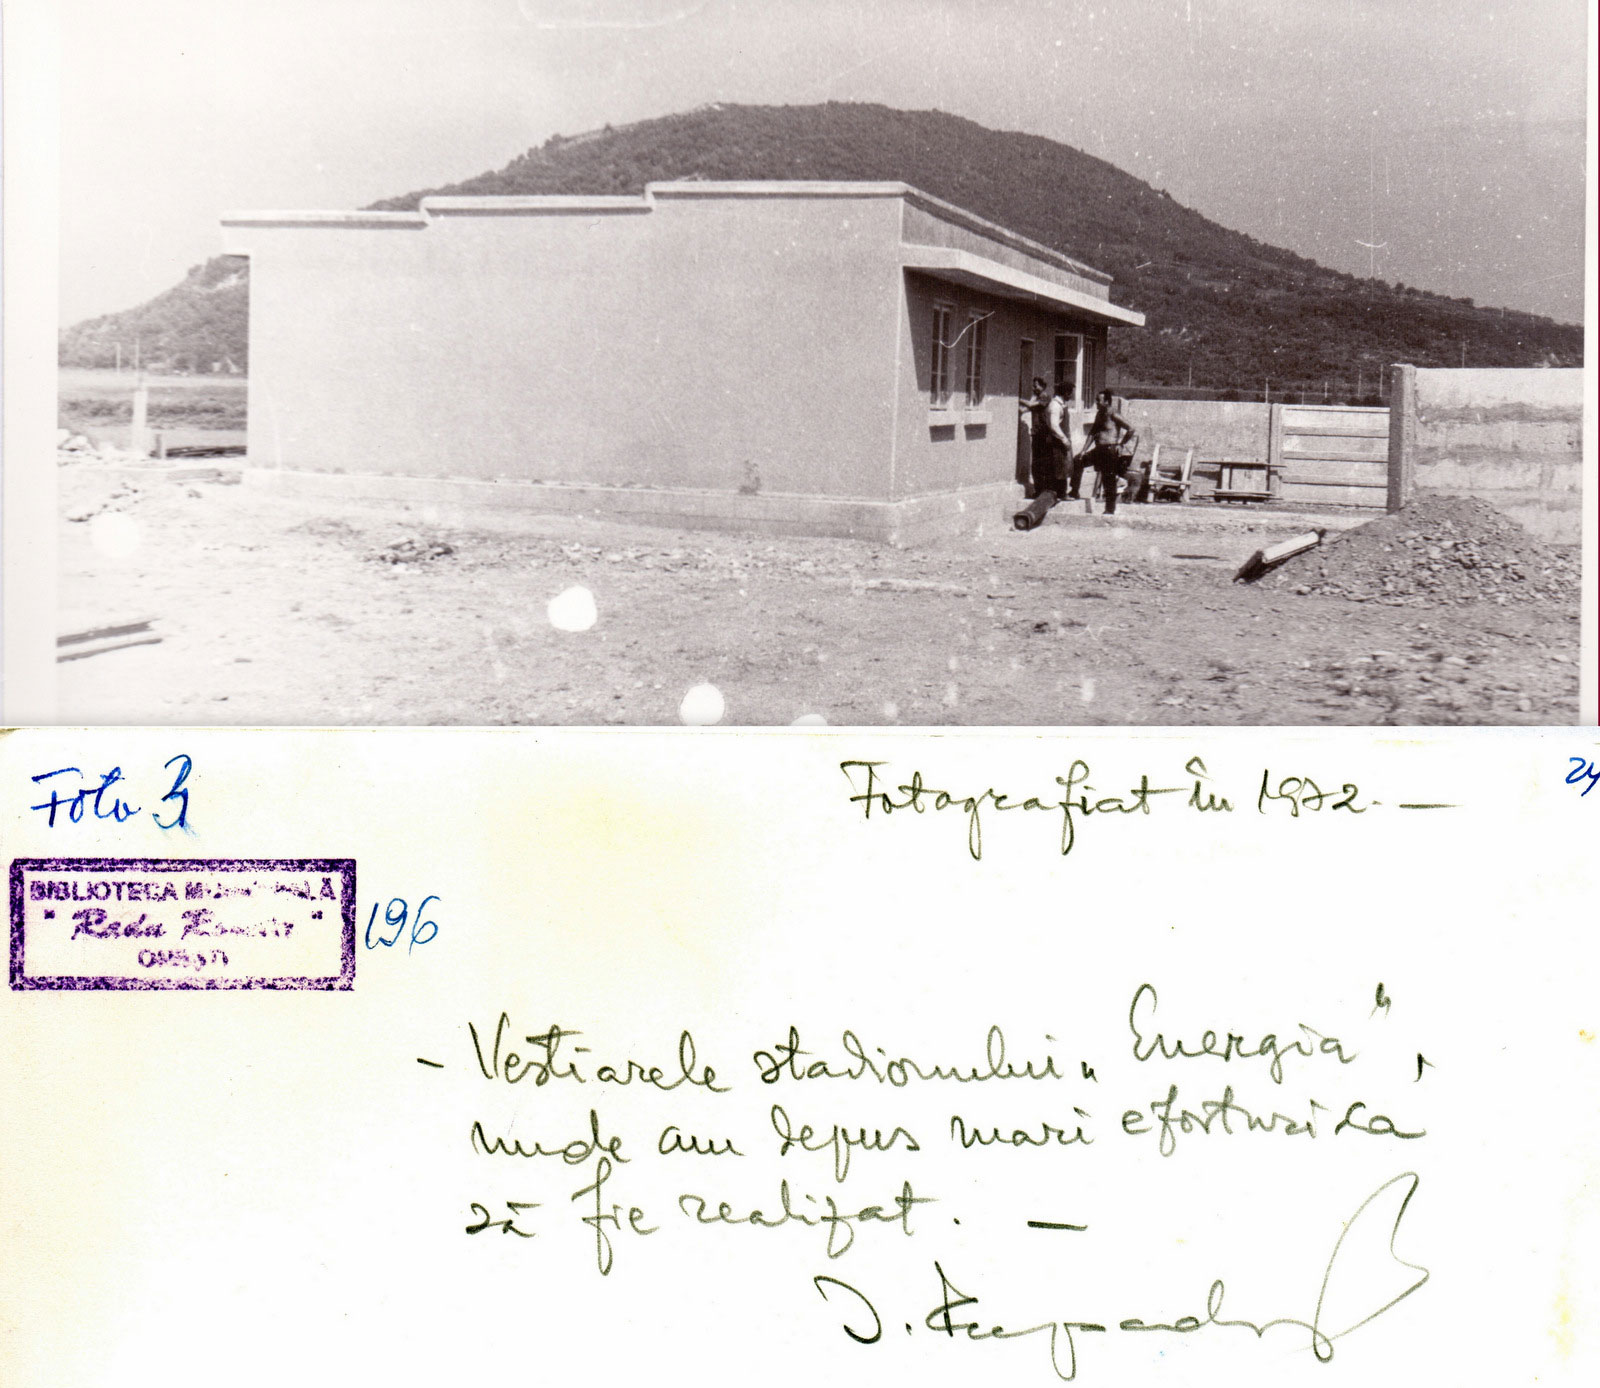 Foto 3
Fotografiat în 1972. —
24
BIBLIOTECA MUNICIPALĂ
"Radu Rosetti"
ONEŞTI
196
- Vestiarele stadionului „Energia",
unde am depus mari eforturi ca
să fie realizat. —